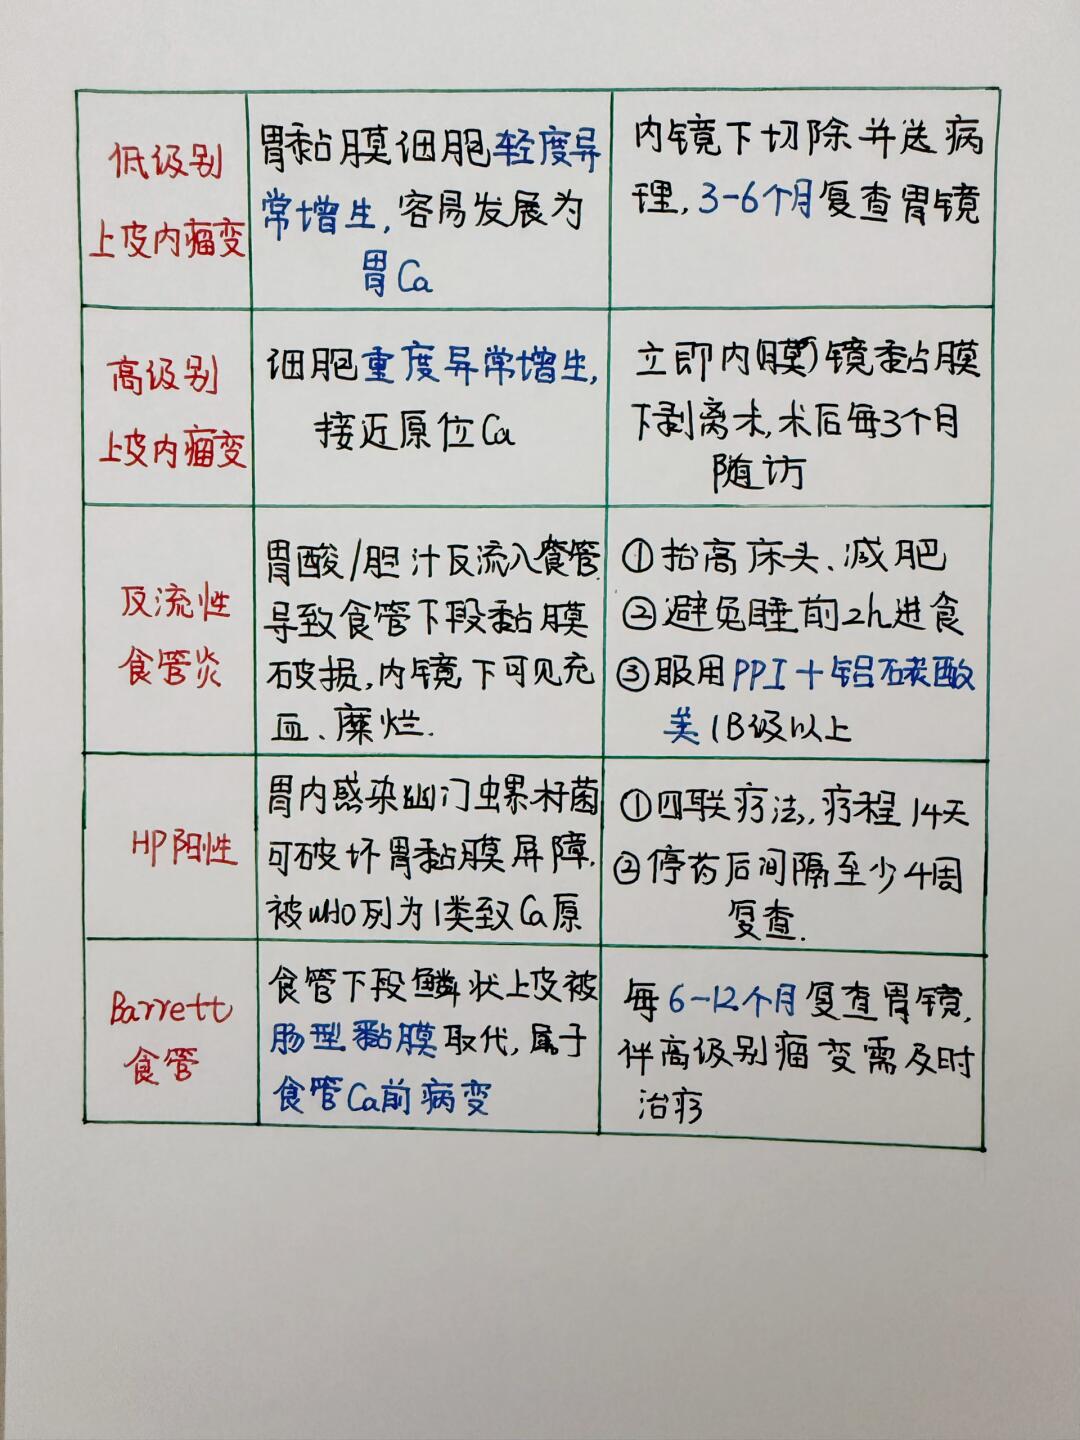 低级别
上皮内瘤变
胃黏膜细胞轻度异
常增生,容易发展为
胃Ca
内镜下切除并送病
理,3-6个月复查胃镜
高级别
上皮内瘤变
细胞重度异常增生,
接近原位Ca
立即内(膜)镜黏膜
下剥离术,术后每3个月
随访
反流性
食管炎
胃酸/胆汁反流入食管
导致食管下段黏膜
破损,内镜下可见充
血、糜烂.
①抬高床头、减肥
②避免睡前2h进食
③服用PPI+铝碳酸
类(B级以上
HP阳性
胃内感染幽门虫累杆菌
可破坏胃黏膜屏障,
被WHO列为1类致Ca原
①四联疗法,疗程14天
②停药后间隔至少4周
复查.
Barrett
食管
食管下段鳞状上皮被
肠型黏膜取代,属于
食管Ca前病变
每6-12个月复查胃镜,
伴高级别瘤变需及时
治疗